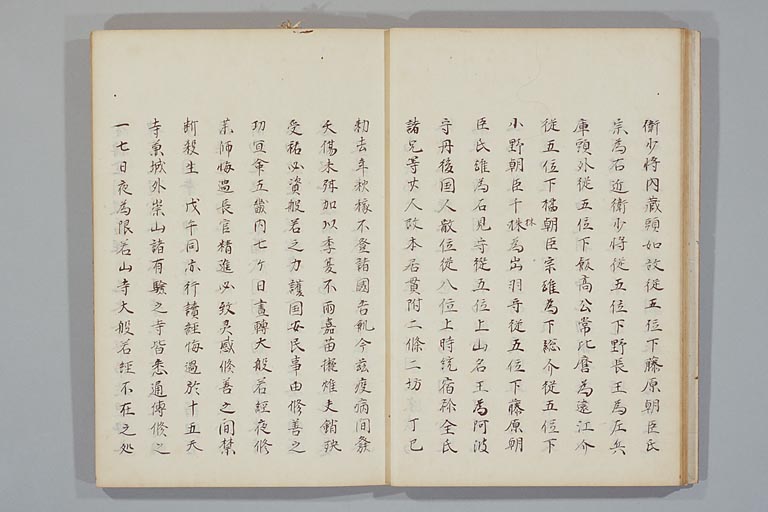 衛少将内蔵頭如故従五位下藤原朝臣氏
宗為右近衛少将従五位下野長王為左兵
庫頭外従五位下飯高公常比麿為遠江介
従五位下橘朝臣宗雄為下総介従五位下
小野朝臣千株為出羽守従五位下藤原朝
林
臣氏雄為石見守従五位上山名王為阿波
守丹後国人散位従八位上時統宿祢全氏
諸兄等廿人改本居貫附二條二坊 丁巳
勅去年秋稼不登諸國告飢今茲疫病間發
夭傷未弭加以季夏不雨嘉苗擬燋夫銷殃
受祐必資般若之力護国安民事由修善之
功宜令五畿内七ケ日晝轉大般若経夜修
薬師悔過長官精進必致灵感修善之間禁
断殺生 戊午同亦行讀経悔過於十五大
寺東城外崇山諸有験之寺皆悉通傳修之
一七日夜為限若山寺大般若経不在之処